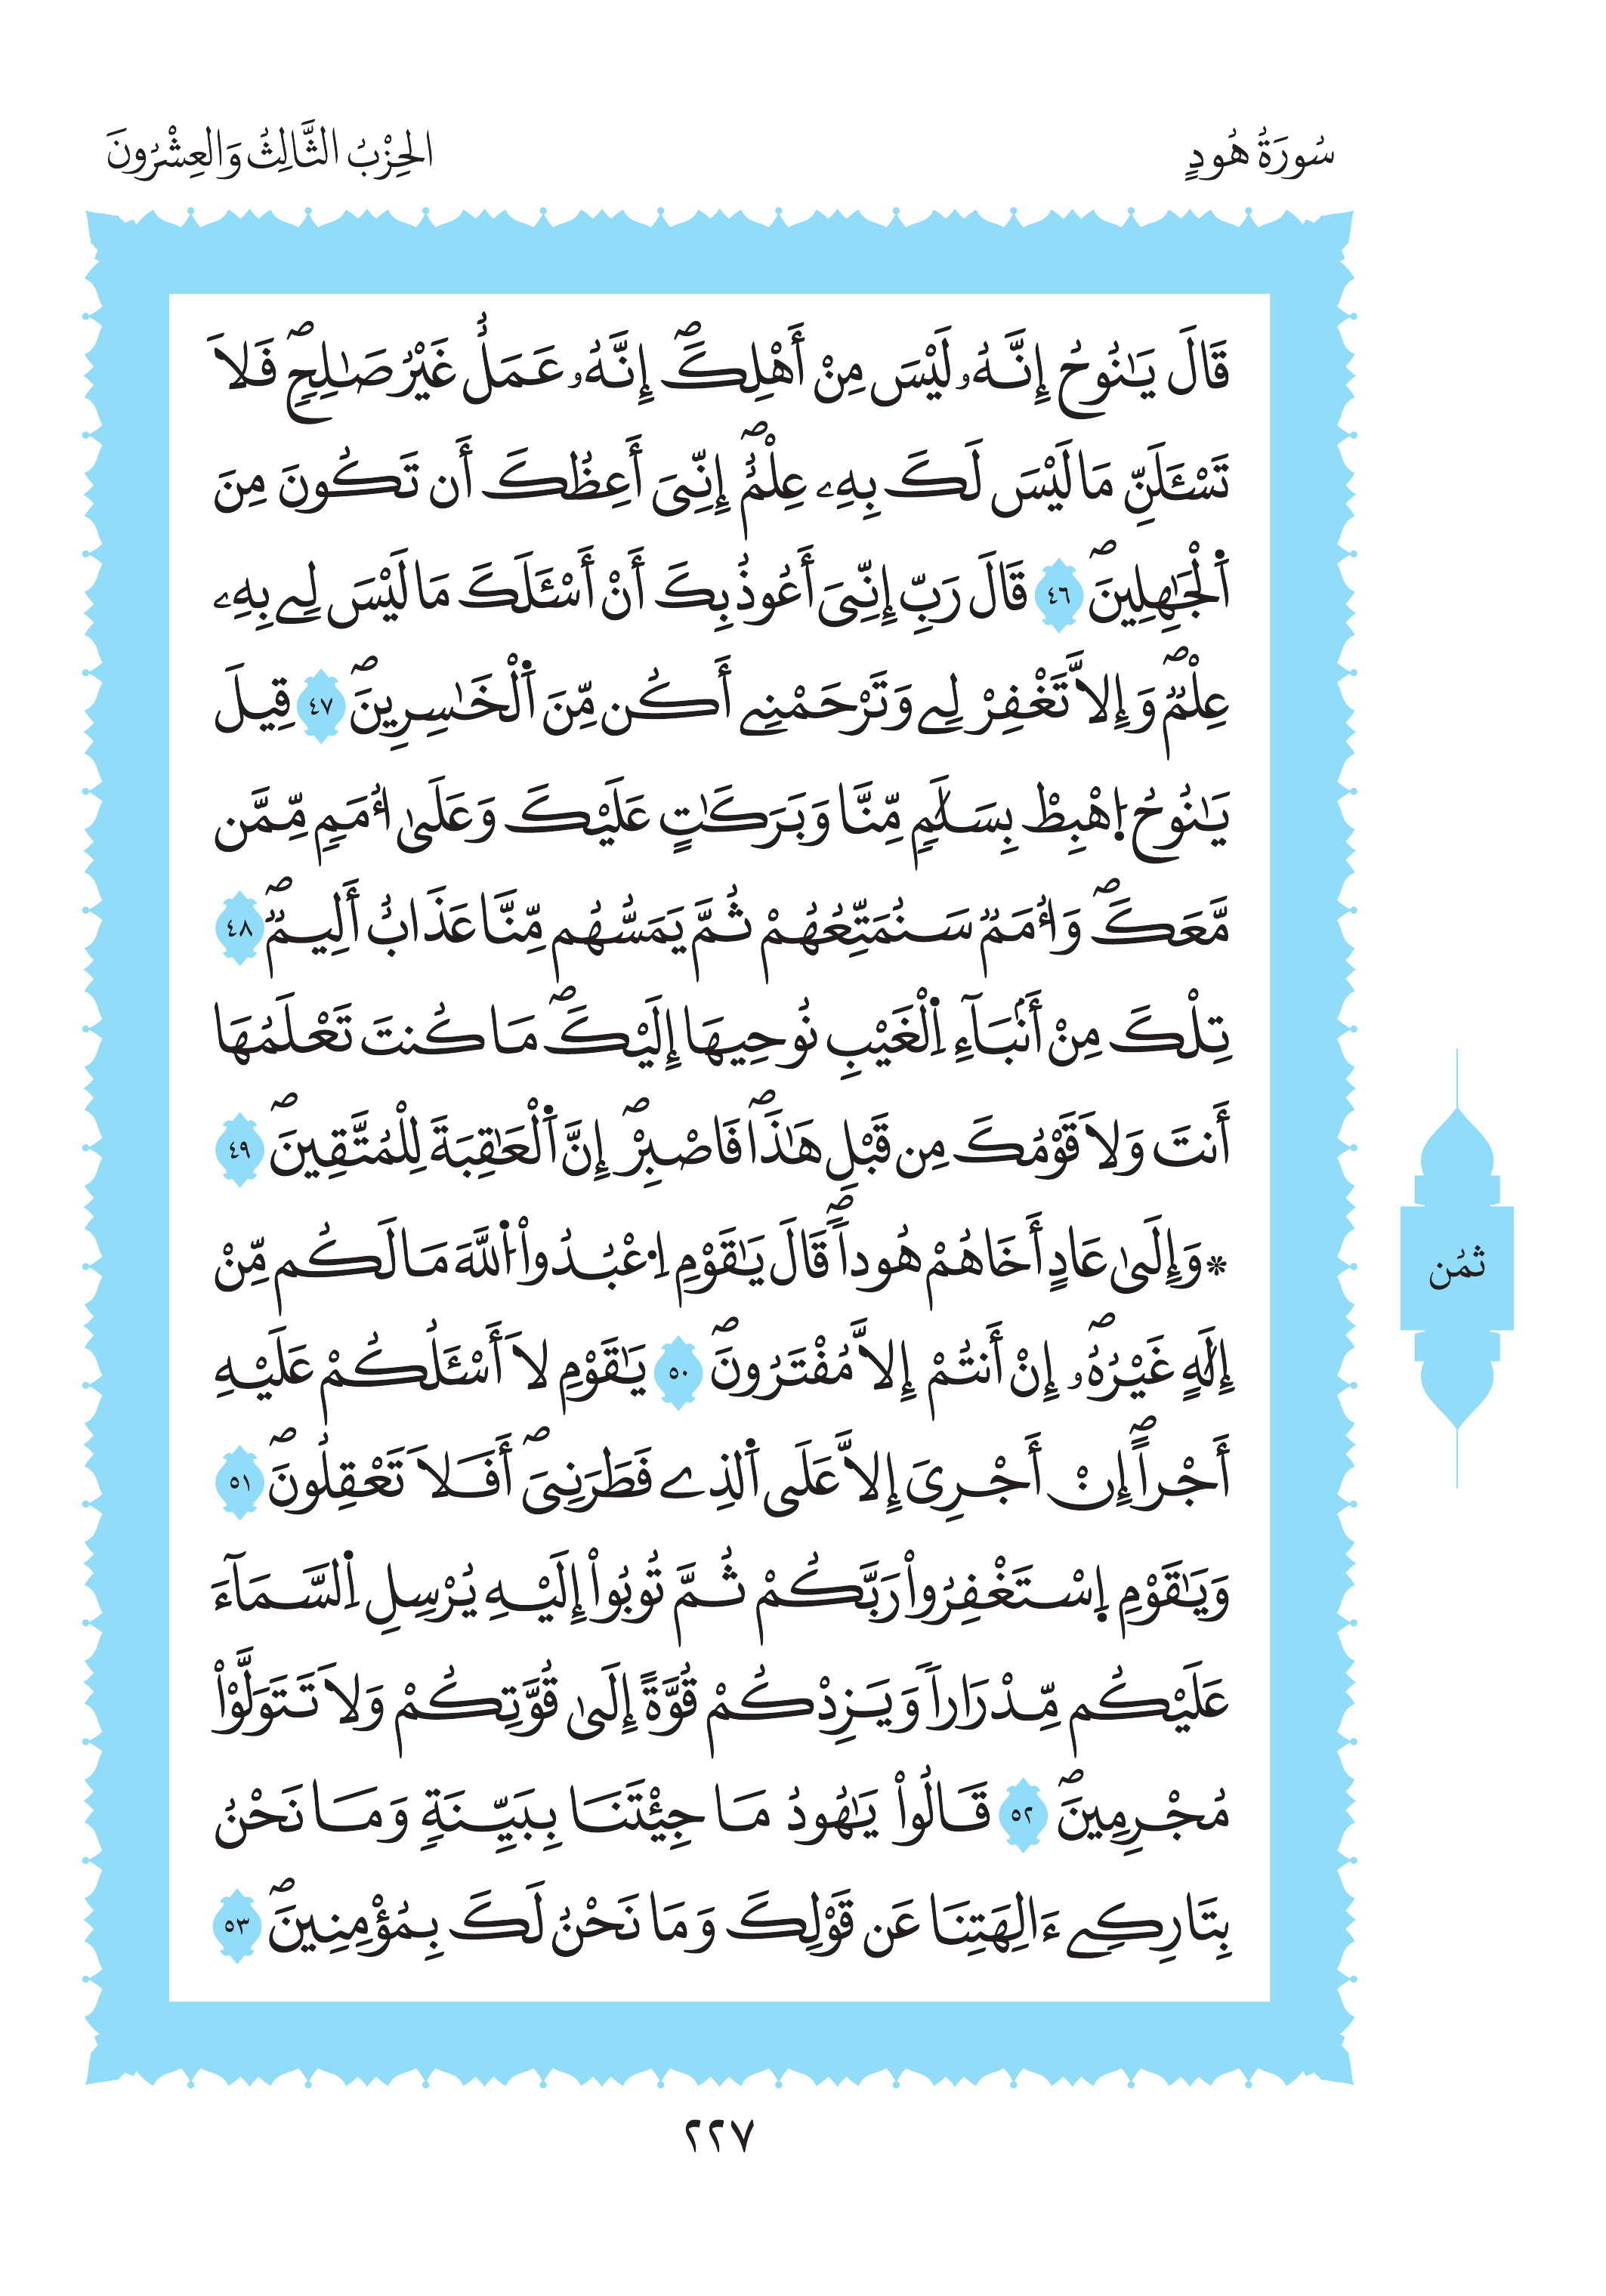 سُورَةُ هُودٍ
الحِزْبُ الثَّالِثُ وَالعِشْرُونَ
قَالَ يَٰنُوحُ إِنَّهُۥ لَيْسَ مِنْ أَهْلِكَۖ إِنَّهُۥ عَمَلٌ غَيْرُ صَٰلِحٖۖ فَلَا
تَسْـَٔلَنِّ مَا لَيْسَ لَكَ بِهِۦ عِلْمٌۖ إِنِّيَ أَعِظُكَ أَن تَكُونَ مِنَ
اَ۬لْجَٰهِلِينَۖ ٤٦ قَالَ رَبِّ إِنِّيَ أَعُوذُ بِكَ أَنْ أَسْـَٔلَكَ مَا لَيْسَ لِے بِهِۦ
عِلْمٞۖ وَإِلَّا تَغْفِرْ لِے وَتَرْحَمْنِے أَكُن مِّنَ اَ۬لْخَٰسِرِينَۖ ٤٧ قِيلَ
يَٰنُوحُ اُ۪هْبِطْ بِسَلَٰمٖ مِّنَّا وَبَرَكَٰتٍ عَلَيْكَ وَعَلَىٰ أُمَمٖ مِّمَّن
مَّعَكَۖ وَأُمَمٞ سَنُمَتِّعُهُمْ ثُمَّ يَمَسُّهُم مِّنَّا عَذَابٌ أَلِيمٞۖ ٤٨
تِلْكَ مِنْ أَنۢبَآءِ اِ۬لْغَيْبِ نُوحِيهَا إِلَيْكَۖ مَا كُنتَ تَعْلَمُهَا
أَنتَ وَلَا قَوْمُكَ مِن قَبْلِ هَٰذَاۖ فَاصْبِرْۖ إِنَّ اَ۬لْعَٰقِبَةَ لِلْمُتَّقِينَۖ ٤٩
* وَإِلَىٰ عَادٍ أَخَاهُمْ هُوداٗۖ قَالَ يَٰقَوْمِ اِ۟عْبُدُواْ اُ۬للَّهَ مَا لَكُم مِّنْ
إِلَٰهٍ غَيْرُهُۥۖ إِنْ أَنتُمْ إِلَّا مُفْتَرُونَۖ ٥٠ يَٰقَوْمِ لَا أَسْـَٔلُكُمْ عَلَيْهِ
أَجْراًۖ إِنْ أَجْرِيَ إِلَّا عَلَى اَ۬لذِے فَطَرَنِيَۖ أَفَلَا تَعْقِلُونَۖ ٥١
وَيَٰقَوْمِ اِ۪سْتَغْفِرُواْ رَبَّكُمْ ثُمَّ تُوبُواْ إِلَيْهِ يُرْسِلِ اِ۬لسَّمَآءَ
عَلَيْكُم مِّدْرَاراٗ وَيَزِدْكُمْ قُوَّةً إِلَىٰ قُوَّتِكُمْ وَلَا تَتَوَلَّوْاْ
مُجْرِمِينَۖ ٥٢ قَالُواْ يَٰهُودُ مَا جِئْتَنَا بِبَيِّنَةٖ وَمَا نَحْنُ
بِتَارِكِے ءَالِهَتِنَا عَن قَوْلِكَ وَمَا نَحْنُ لَكَ بِمُؤْمِنِينَۖ ٥٣
ثُمُن
٢٢٧